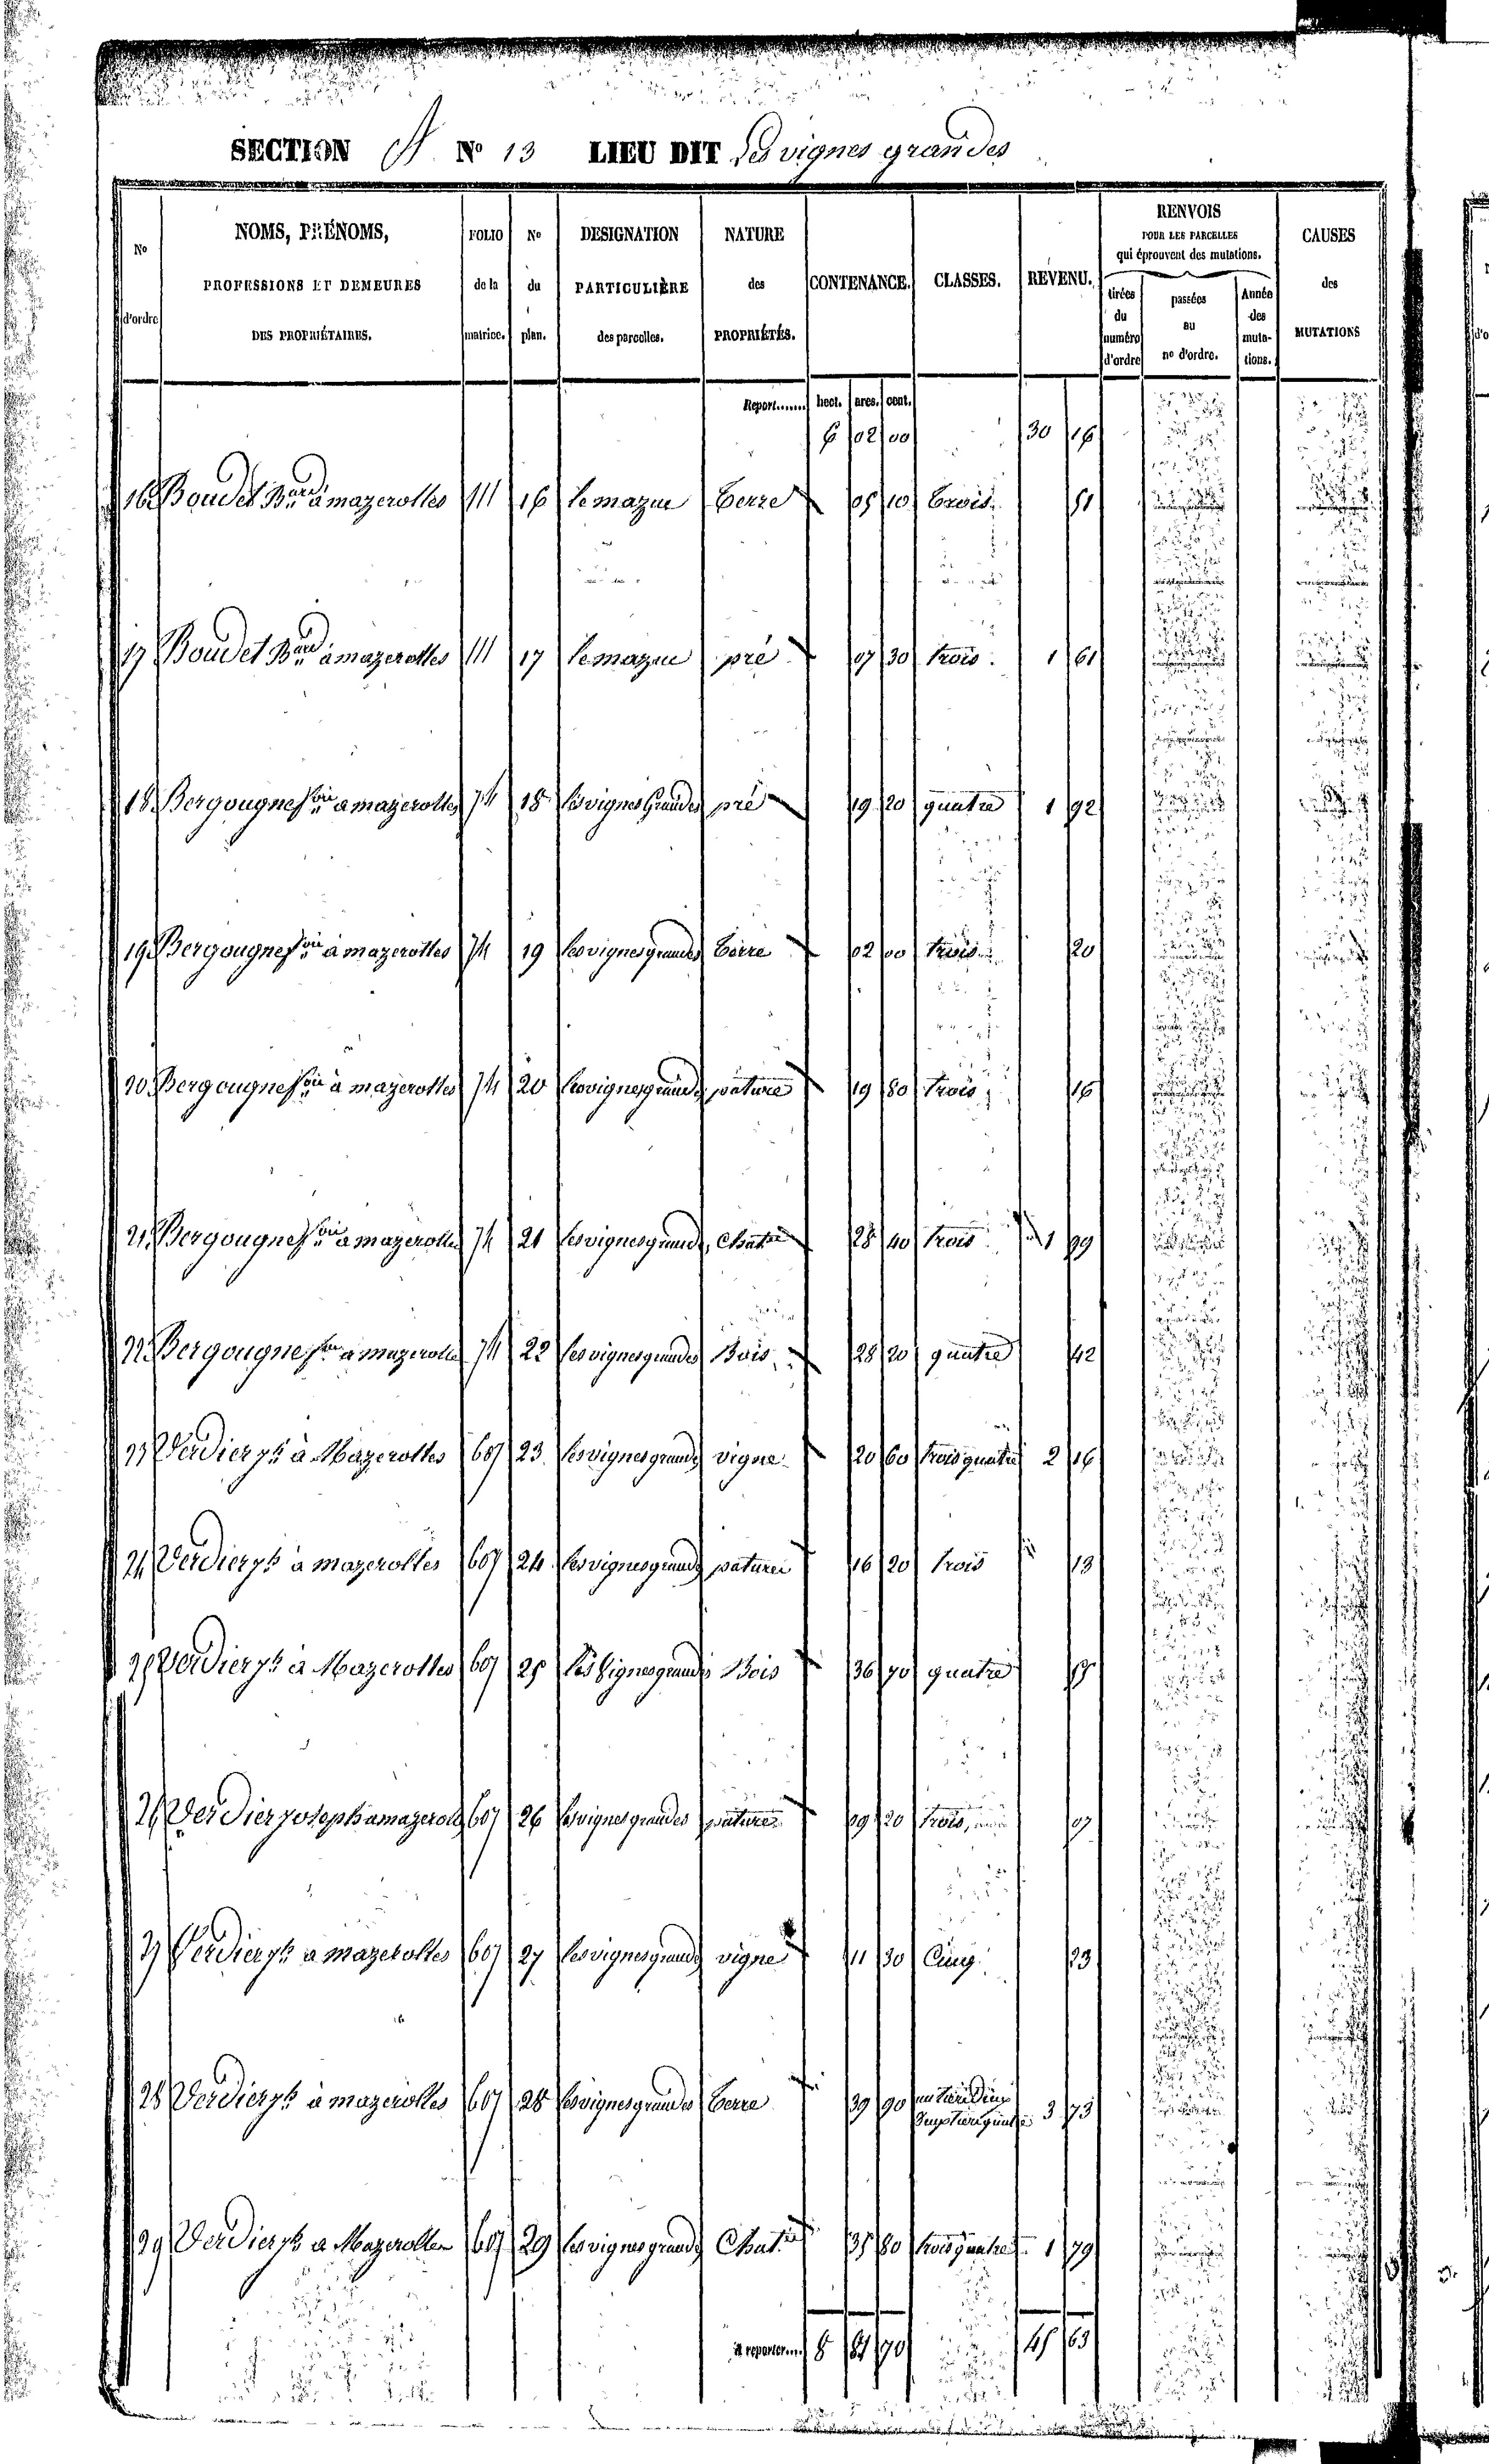 SECTION A N° 13 LIEU DIT Les vignes grandes
N° d'ordre
NOMS, PRÉNOMS, PROFESSIONS ET DEMEURES DES PROPRIÉTAIRES.
FOLIO de la matrice.
N° du plan.
DESIGNATION PARTICULIÈRE des parcelles.
NATURE des PROPRIÉTÉS.
CONTENANCE.
CLASSES.
REVENU.
RENVOIS POUR LES PARCELLES qui éprouvent des mutations.
tirées du numéro d'ordre
passées au n° d'ordre.
Année des mutations.
CAUSES des MUTATIONS
Report....... hect. ares. cent.
6 02 00 30 16
16 Boudet B.ard à mazerolles 111 16 le mazue terre 05 10 trois 51
17 Boudet B.ard à mazerolles 111 17 le mazue pré 07 30 trois 1 61
18 Bergougne à mazerolles 74 18 les vignes Grandes pré 19 20 quatre 1 92
19 Bergougne à mazerolles 74 19 les vignes grandes terre 02 00 trois 20
20 Bergougne à mazerolles 74 20 les vignes grandes pature 19 80 trois 16
21 Bergougne à mazerolles 74 21 les vignes grandes Chat.re 28 40 trois 1 99
22 Bergougne à mazerolles 74 22 les vignes grandes Bois 28 20 quatre 42
23 Verdier jh à Mazerolles 607 23 les vignes grandes vigne 20 60 trois quatre 2 16
24 Verdier jh à mazerolles 607 24 les vignes grandes pature 16 20 trois 13
25 Verdier jh à Mazerolles 607 25 les vignes grandes Bois 36 70 quatre 55
26 Verdier joseph à mazerolles 607 26 les vignes grandes pature 09 20 trois 07
27 Verdier jh à mazerolles 607 27 les vignes grandes vigne 11 30 Cinq 23
28 Verdier jh à mazerolles 607 28 les vignes grandes terre 39 90 un tiers Deux 3 73
29 Verdier jh à Mazerolles 607 29 les vignes grandes Chat.re 35 80 trois quatre 1 79
A reporter.... 8 81 70 45 63